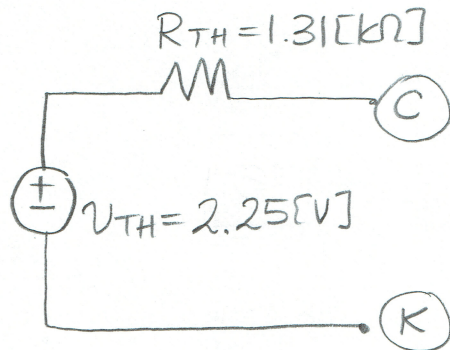 RTH=1.31[kΩ]
C
±
vTH=2.25[V]
K